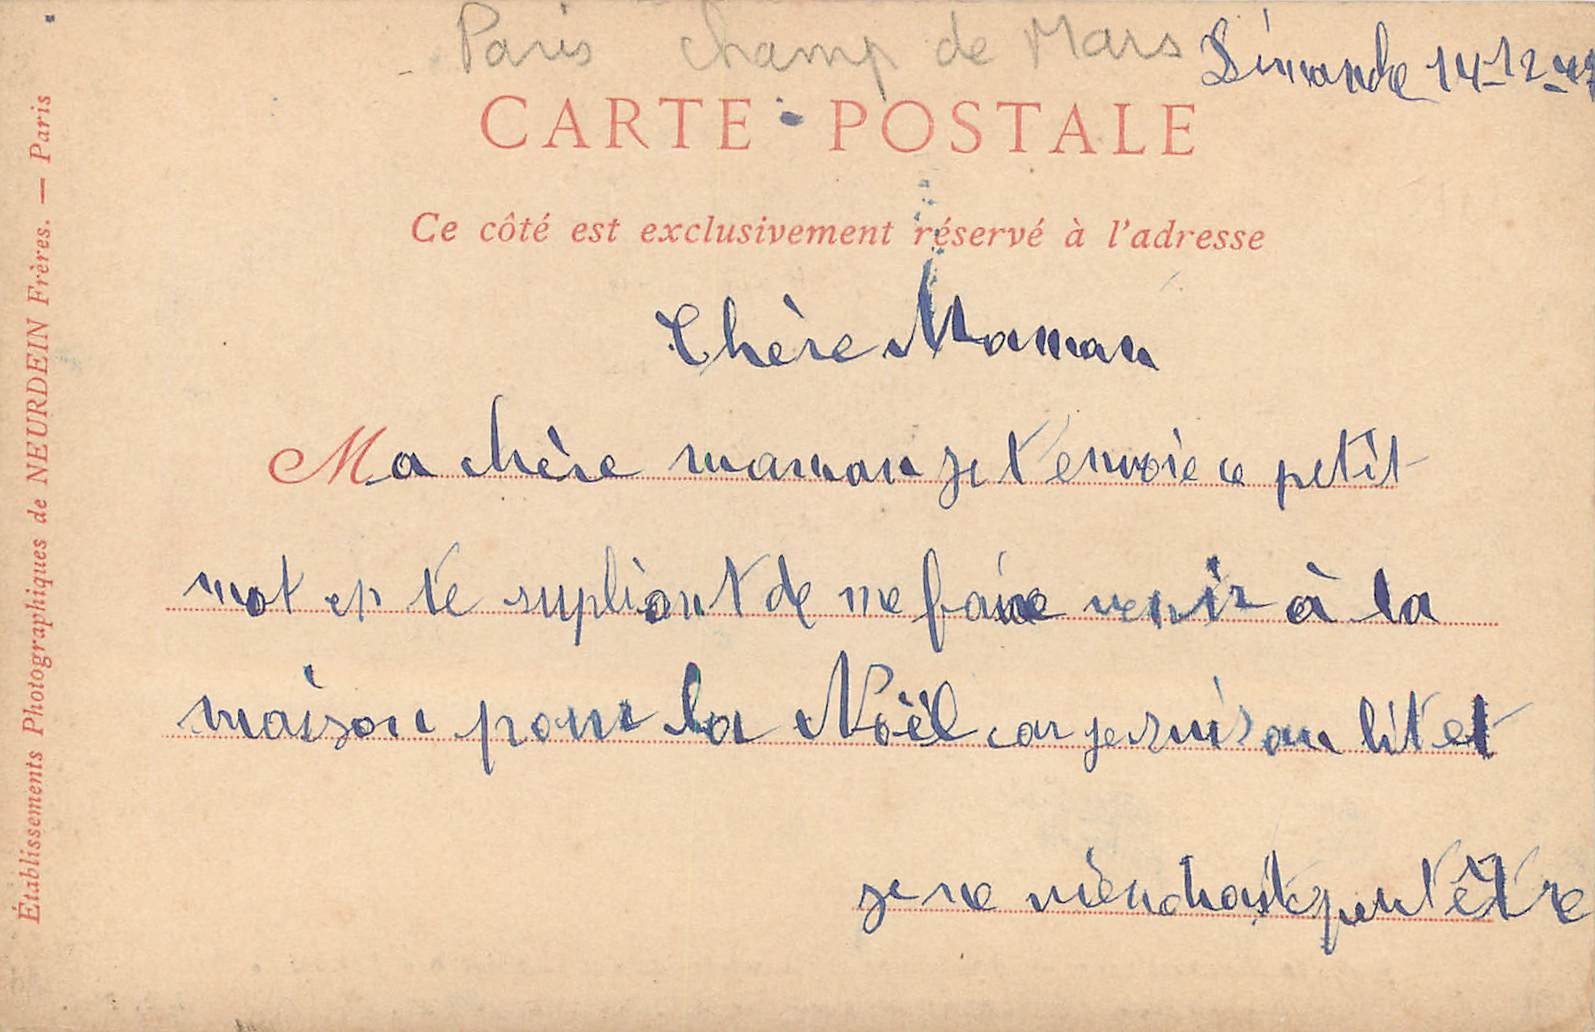 Paris champ de Mars
Dimanche 14-12-
CARTE - POSTALE
Ce côté est exclusivement réservé à l'adresse
Chère Maman
Ma chère maman je t'envoie ce petit
mot en te supliant de me faire venir à la
maison pour la Noël car je suis au lit et
je ne peut être
Établissements Photographiques de NEURDEIN Frères. — Paris